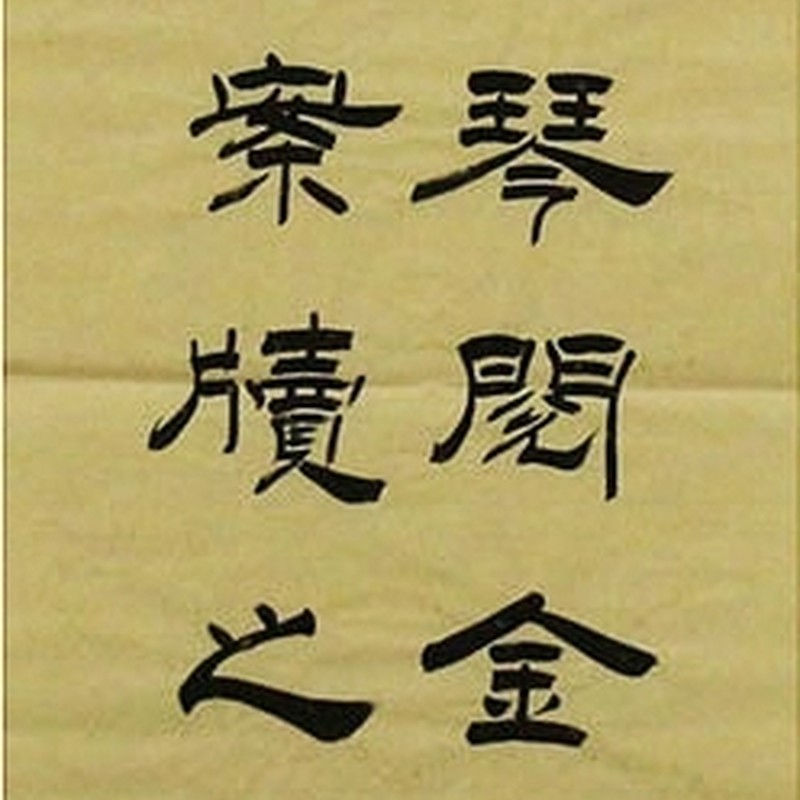 琴閱金
案牘之